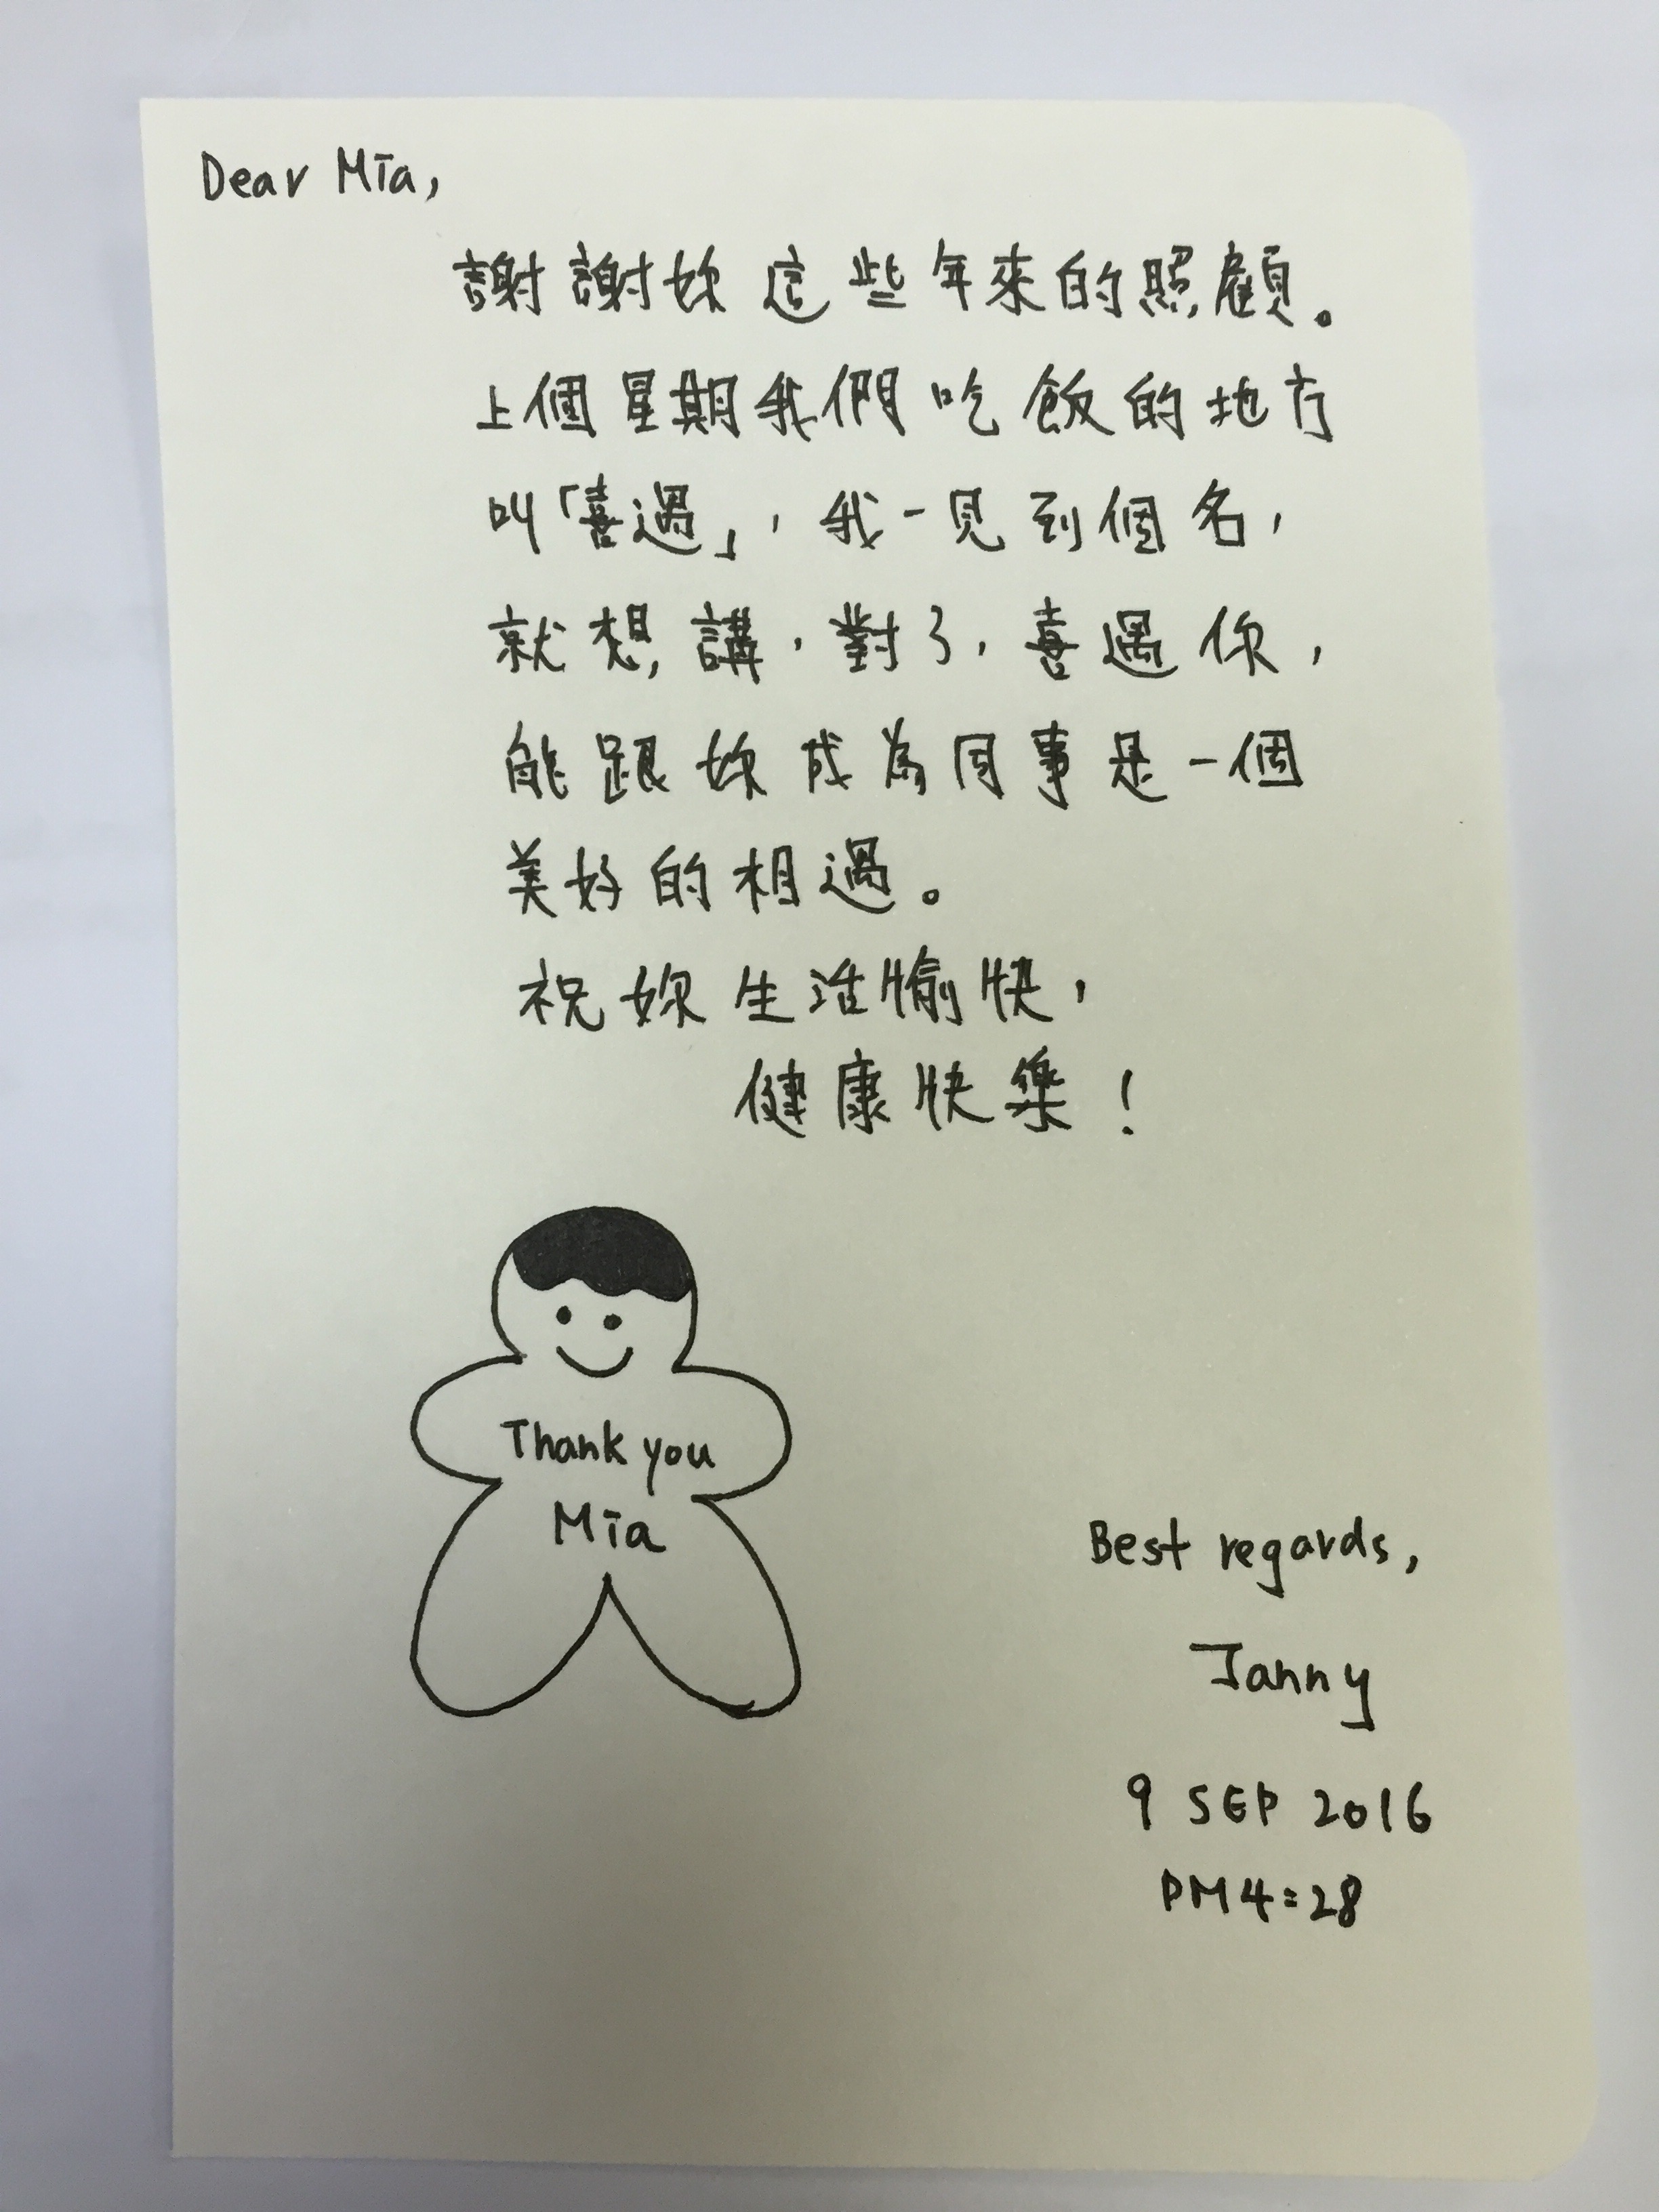 Dear Mia,
謝謝妳這些年來的照顧。
上個星期我們吃飯的地方
叫「喜遇」，我一見到個名，
就想講，對了，喜遇你，
能跟妳成為同事是一個
美好的相遇。
祝妳生活愉快，
健康快樂！
Thank you
Mia
Best regards,
Janny
9 SEP 2016
PM4:28